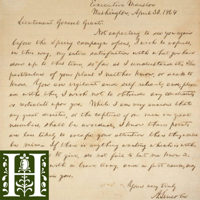 Executive Mansion
Washington, April 30, 1864
Lieutenant General Grant.
Not expecting to see you again
before the Spring campaign opens, I wish to express,
in this way, my entire satisfaction with what you have
done up to this time, so far as I understand it. The
particulars of your plans I neither know, or seek to
know. You are vigilant and self-reliant; and, pleased
with this, I wish not to obtrude any constraints
or restraints upon you. While I am very anxious that
any great disaster, or the capture of our men in great
numbers, shall be avoided, I know these points
are less likely to escape your attention than they would
be mine. If there is anything wanting which is
to give, do not fail to let me know it.
with a brave army, and a just cause, may
Yours very truly
A. Lincoln